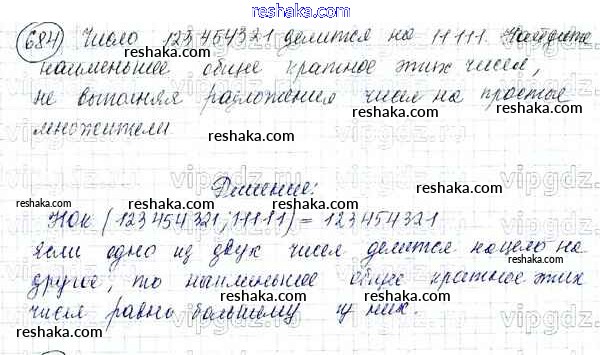 reshaka.com
684 Число 123454321 делится на 11111. Найдите
reshaka.com
наименьшее общее кратное этих чисел,
reshaka.com reshaka.com
не выполняя разложения чисел на простые
reshaka.com
множители
reshaka.com
vipgdz.com
Решение:
reshaka.com
НОК (123454321, 11111) = 123454321
reshaka.com reshaka.com
если одно из двух чисел делится нацело на
другое, то наименьшее общее кратное этих
reshaka.com reshaka.com
числа равно большему из них.
reshaka.com